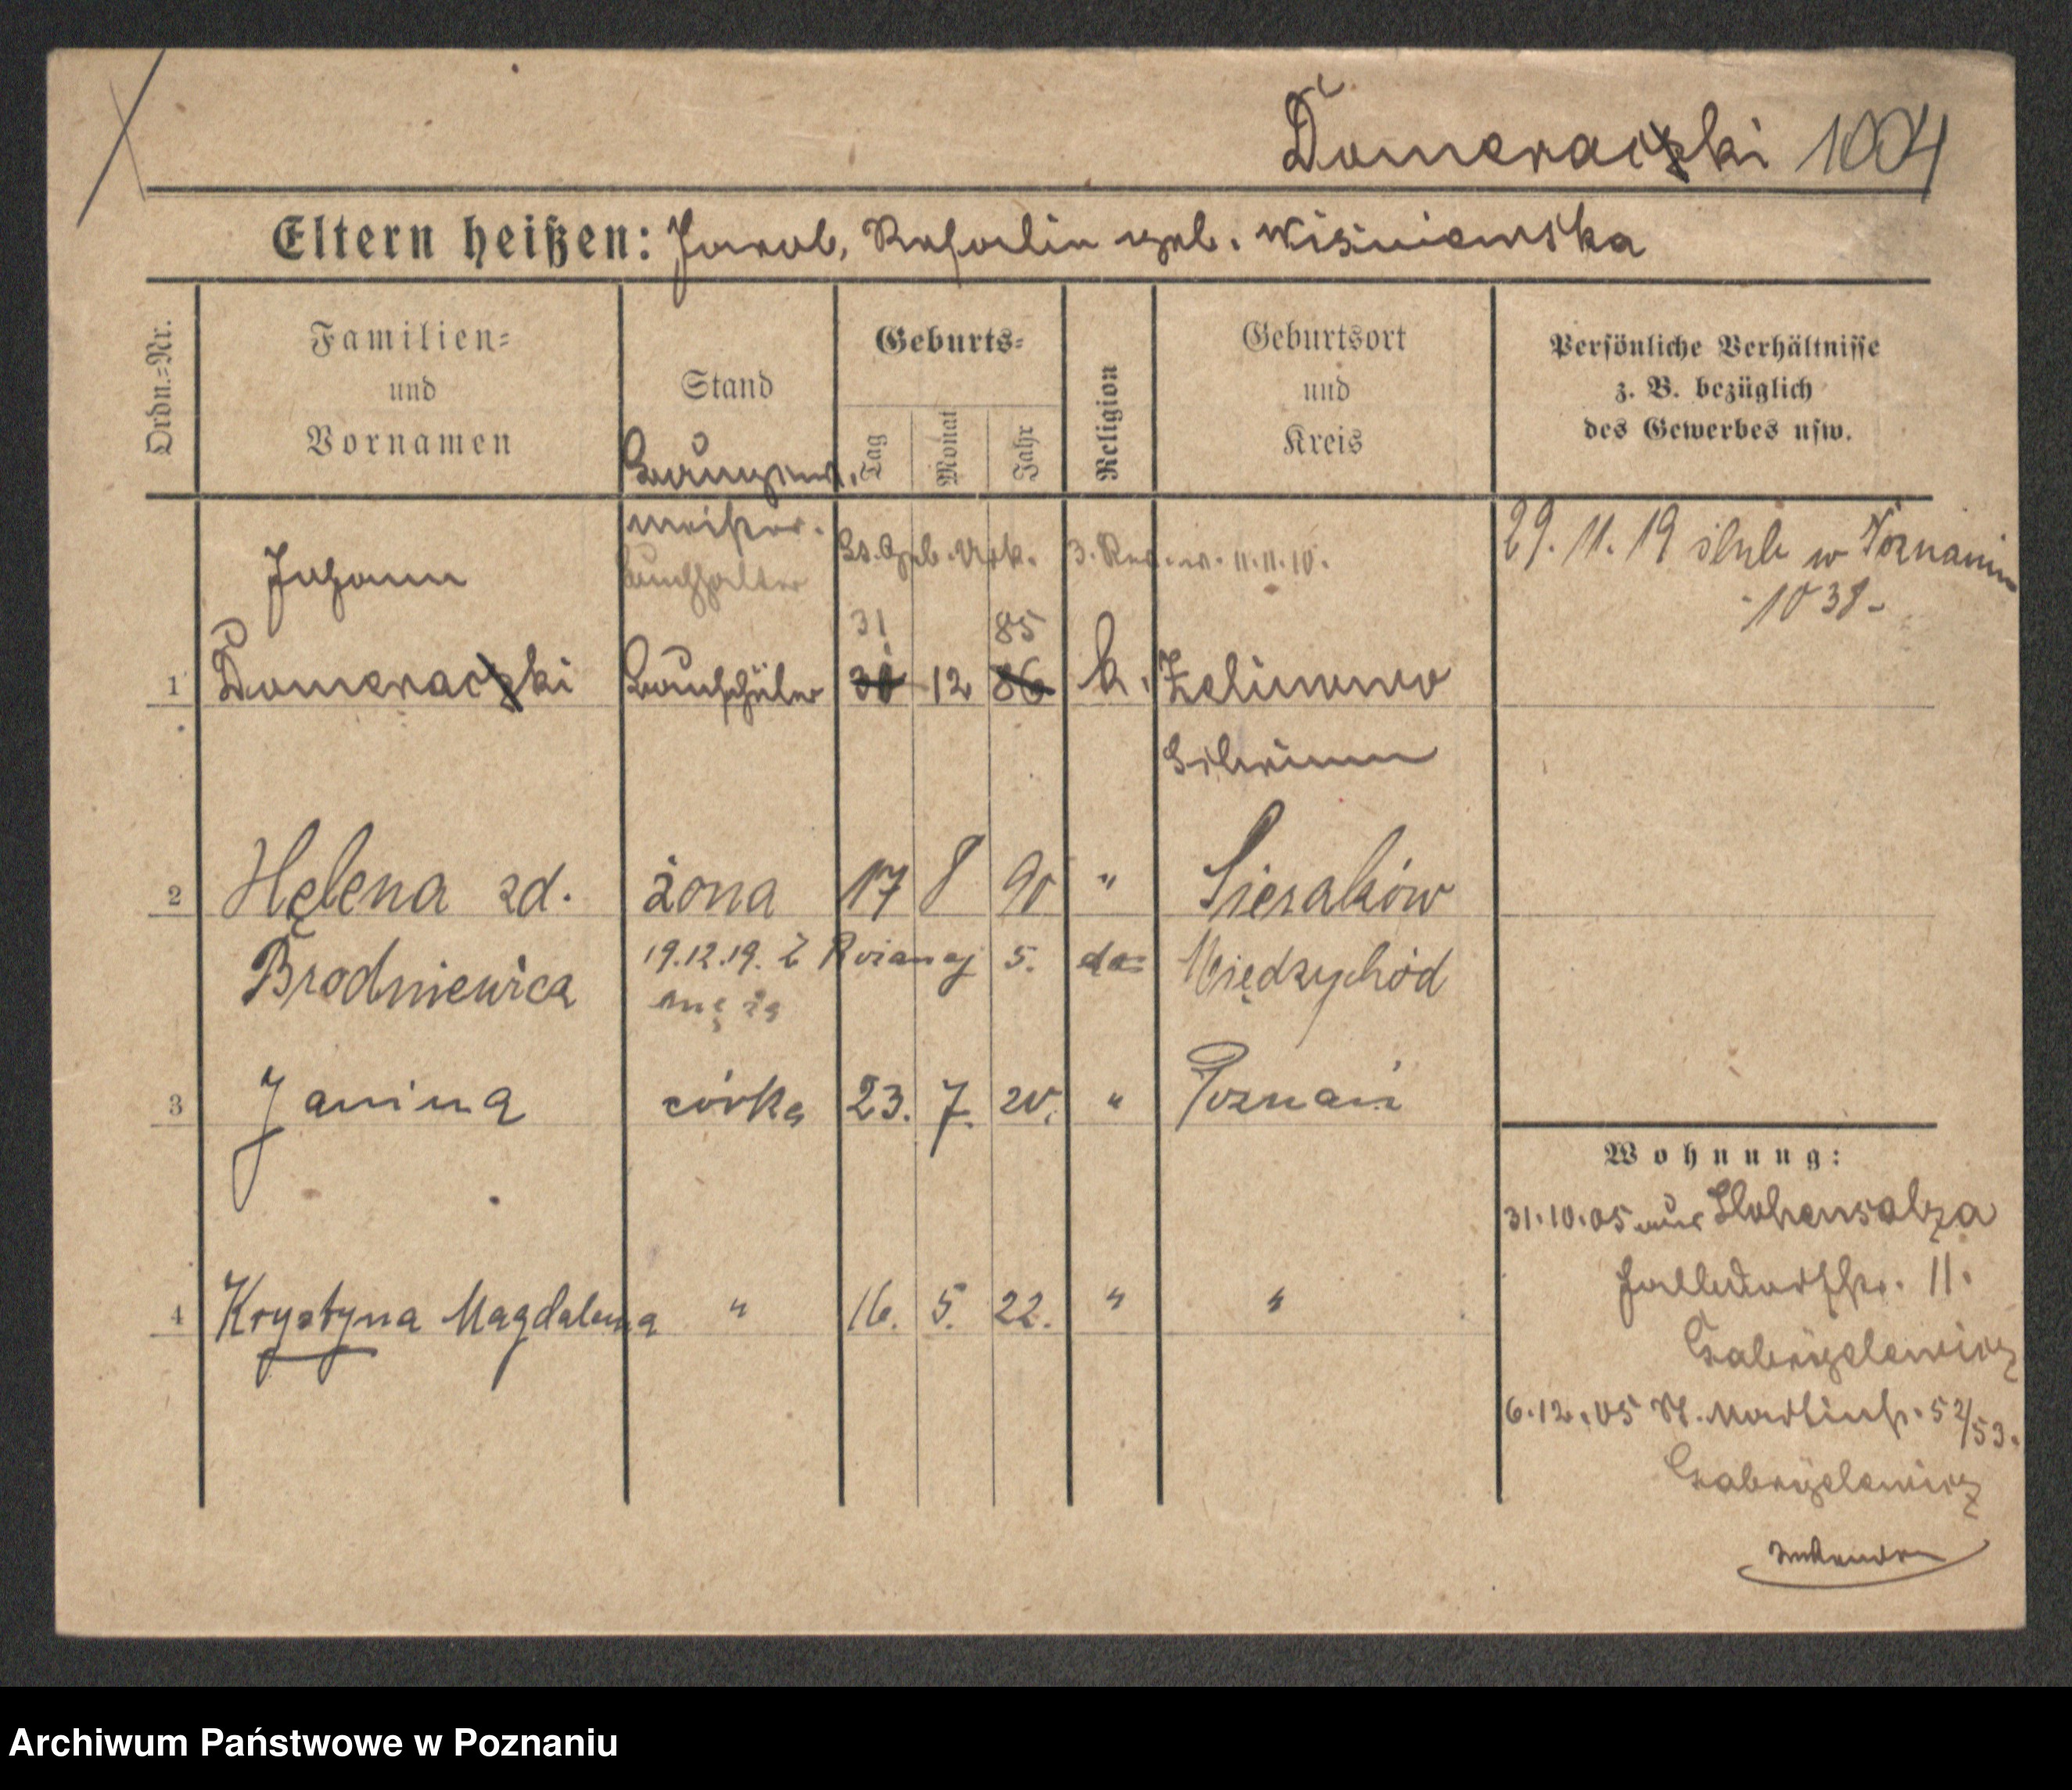 Domeracki 1004
Eltern heißen: Jacob, Rosalie geb. Wiśniewska
Ordn.-Nr.
Familien- und Vornamen
Stand
Geburts-
Tag
Monat
Jahr
Religion
Geburtsort und Kreis
Persönliche Verhältnisse z. B. bezüglich des Gewerbes usw.
meister.
Buchhalter
Gb. Urk. 11.11.10.
29. 11. 19 ślub w Poznaniu
1038
Johann
31 85
1 Domeracki Bauschüler 30 12 86 k.
Schrimm
2 Helena zd. żona 17 8 90 " Sieraków
Brodniewicz 19.12.19. Ż Różanej 5. do Międzychód
męża
3 Janina córka 23. 7. 20. " Poznań
4 Krystyna Magdalena " 16. 5. 22. " "
Wohnung:
31.10.05 aus Hohensalza
11.
Gabryelewicz
6.12.05 St. Martinstr. 52/53.
Gabryelewicz
Archiwum Państwowe w Poznaniu